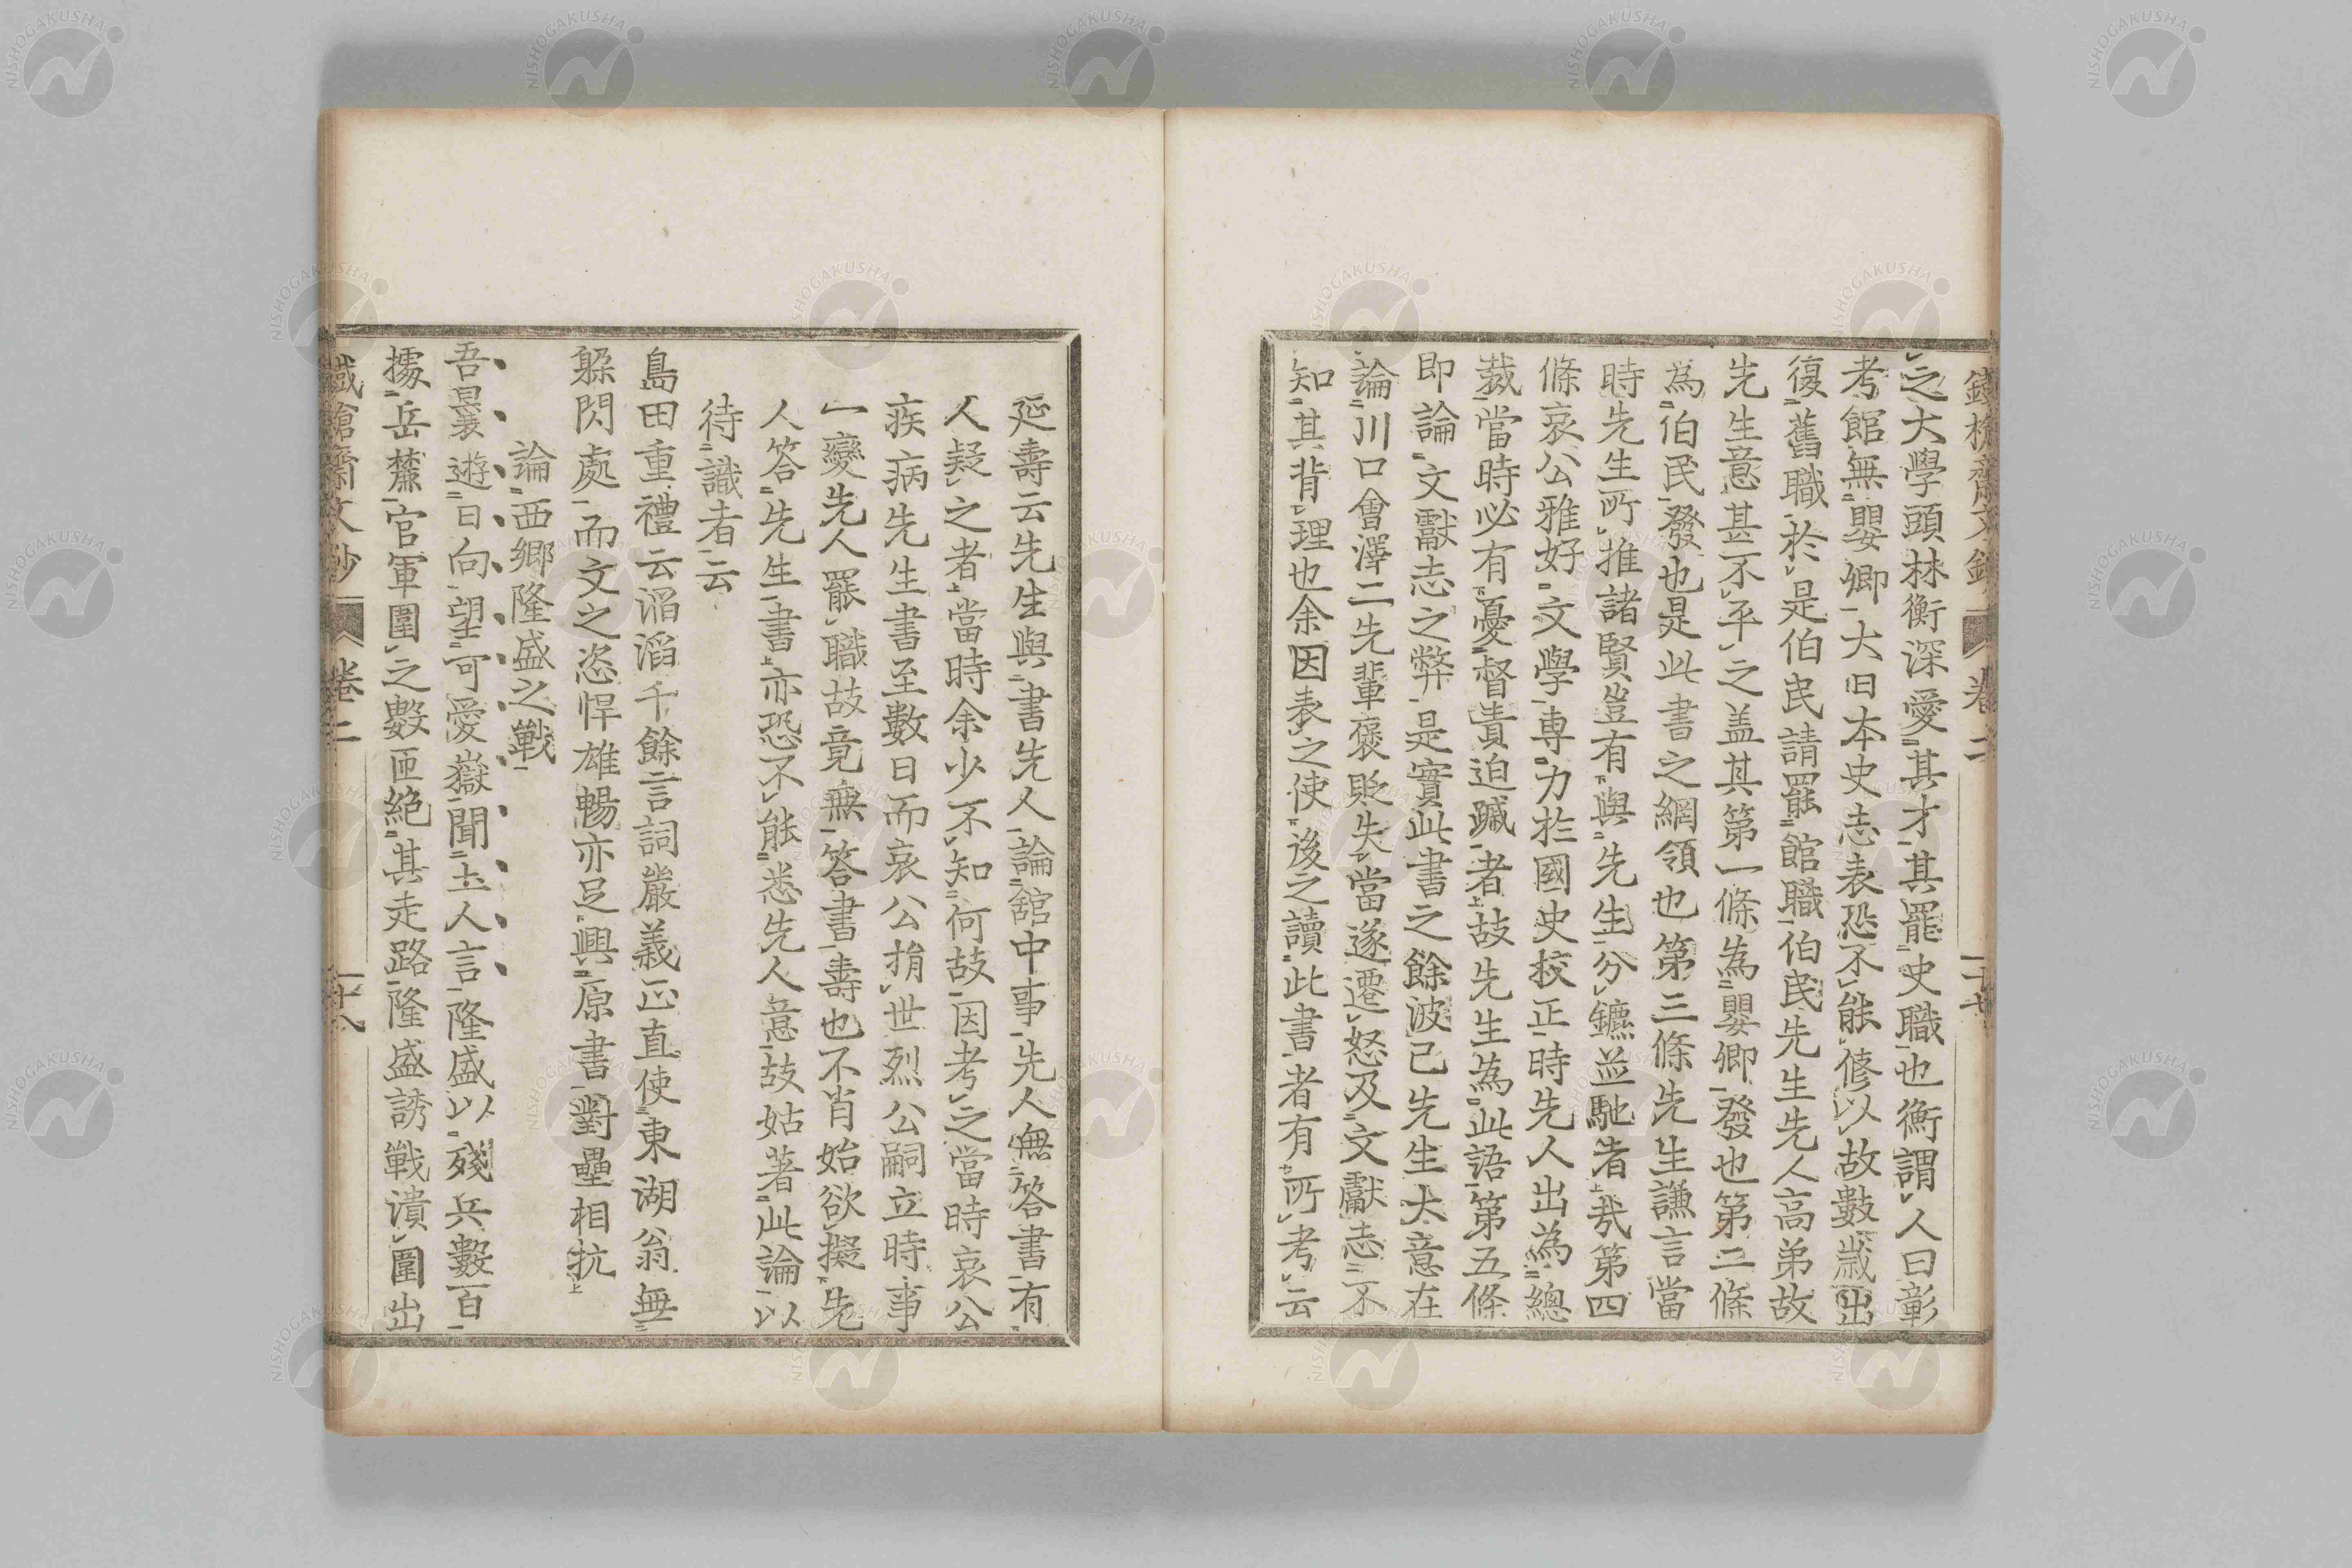 之大學頭林衡深愛其才其罷史職也衡謂人曰彰
考館無嬰卿大日本史志表恐不能修以故數歲出
復舊職於是伯民請罷館職伯民先生先人高弟故
先生意甚不平之盖其第一條為嬰卿發也第二條
為伯民發也是此書之網領也第三條先生謙言當
時先生所推諸賢豈有與先生分鑣並馳者哉第四
條哀公雅好文學專力於國史校正時先人出為總
裁當時必有憂督責迫蹙者故先生為此語第五條
即論文獻志之弊是實此書之餘波已先生大意在
論川口會澤二先輩褒貶失當遂遷怒及文獻志不
知其背理也余因表之使後之讀此書者有所考云
卷二
延壽云先生與書先人論舘中事先人無答書有
人疑之者當時余少不知何故因考之當時哀公
疾病先生書至數日而哀公捐世烈公嗣立時事
一變先人罷職故竟無答書壽也不肖始欲擬先
人答先生書亦恐不能悉先人意故姑著此論以
待識者云
島田重禮云滔滔千餘言詞嚴義正直使東湖翁無
躲閃處而文之恣悍雄暢亦足與原書對壘相抗
論西鄉隆盛之戰
吾曩遊日向望可愛嶽聞土人言隆盛以殘兵數百
據岳麓官軍圍之數匝絕其走路隆盛誘戰潰圍出
鐵槍齋文鈔 卷二 二十八
NISHOGAKUSHA